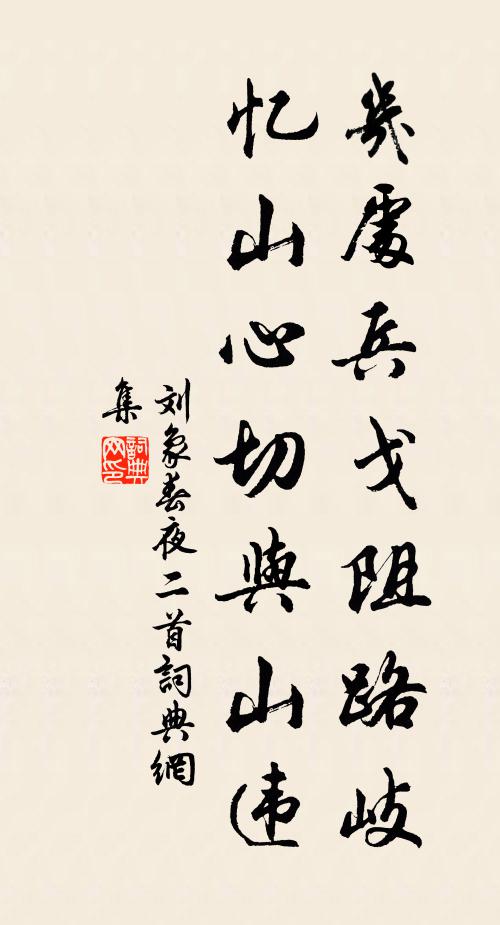 幾處兵戈阻路岐
忆山心切與山违
刘象春夜二首詞典網
集
詞典网印